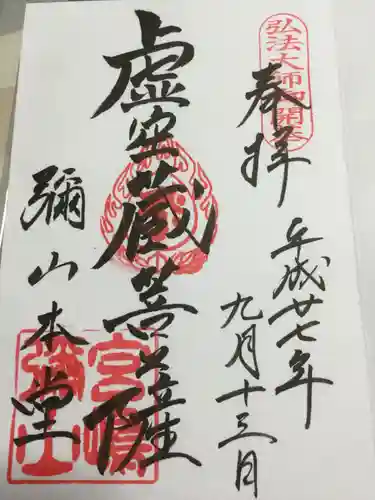 弘法大師御開基
奉拝
平成廿七年
九月十三日
虚空蔵菩薩
彌山本堂
宮嶋
彌山